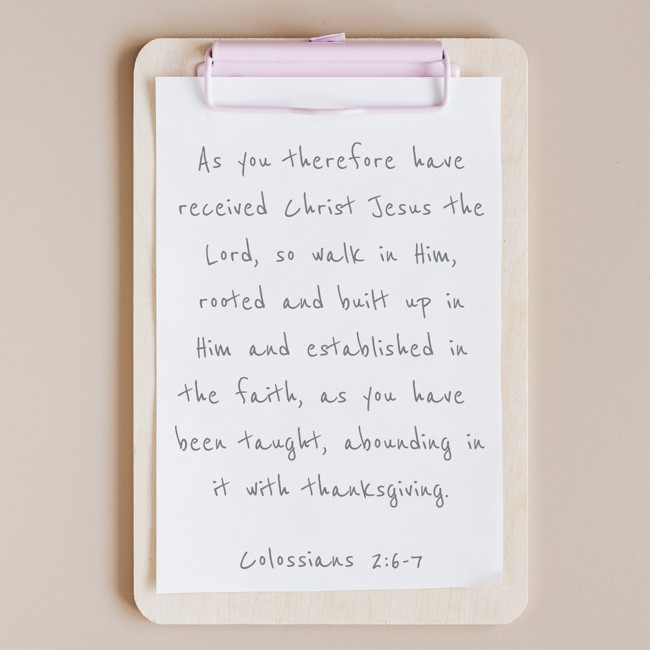 As you therefore have
received Christ Jesus the
Lord, so walk in Him,
rooted and built up in
Him and established in
the faith, as you have
been taught, abounding in
it with thanksgiving.
Colossians 2:6-7